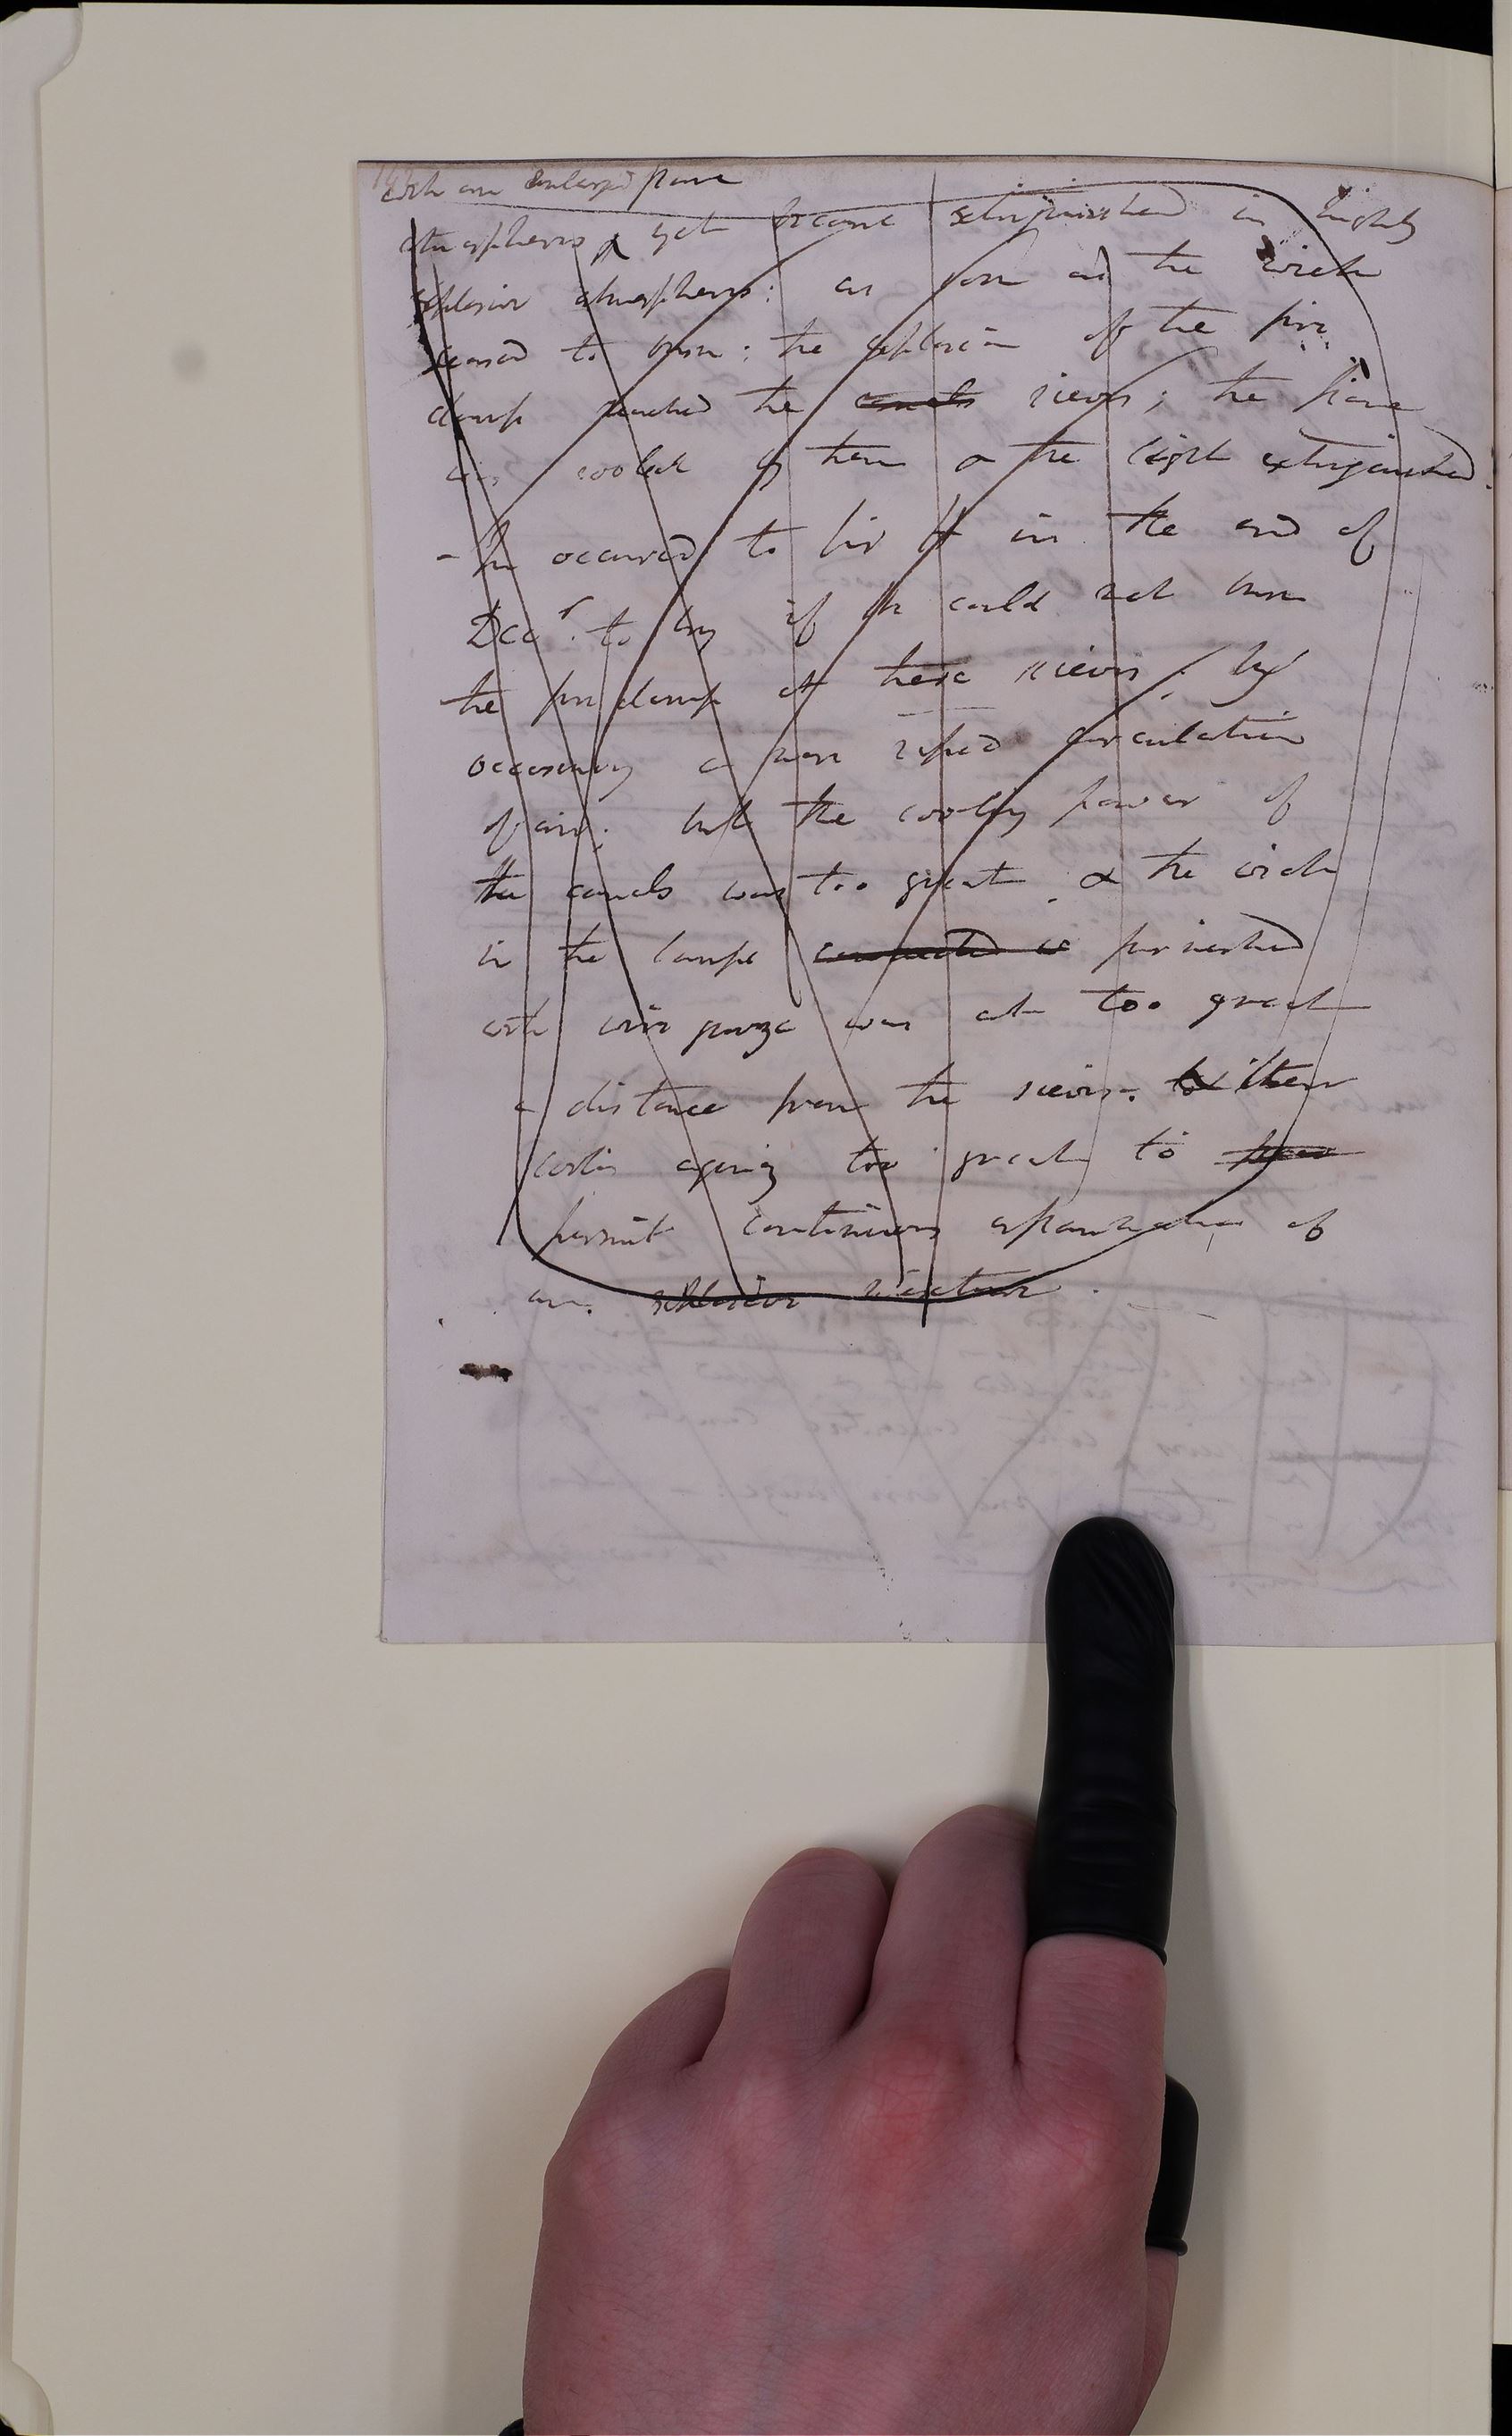 with an enlarged flame
atmospheres yet became extinguished in highly
explosive atmospheres: as soon as the wick
ceased to burn: the explosion of the fire
damp reached the canals sieves; the flame
was cooled by them & the light extinguished.
- It occurred to Sir H in the end of
Decr. to try if he could not burn
the fire damp at these sieves, by
occasioning a more rapid circulation
of air; but the cooling power of
the canals was too great & the wick
in the lamps connected furnished
with wire gauze was at too great
a distance from the sieves. their
cooling agency too great to
permit continuous of
an explosive mixture.